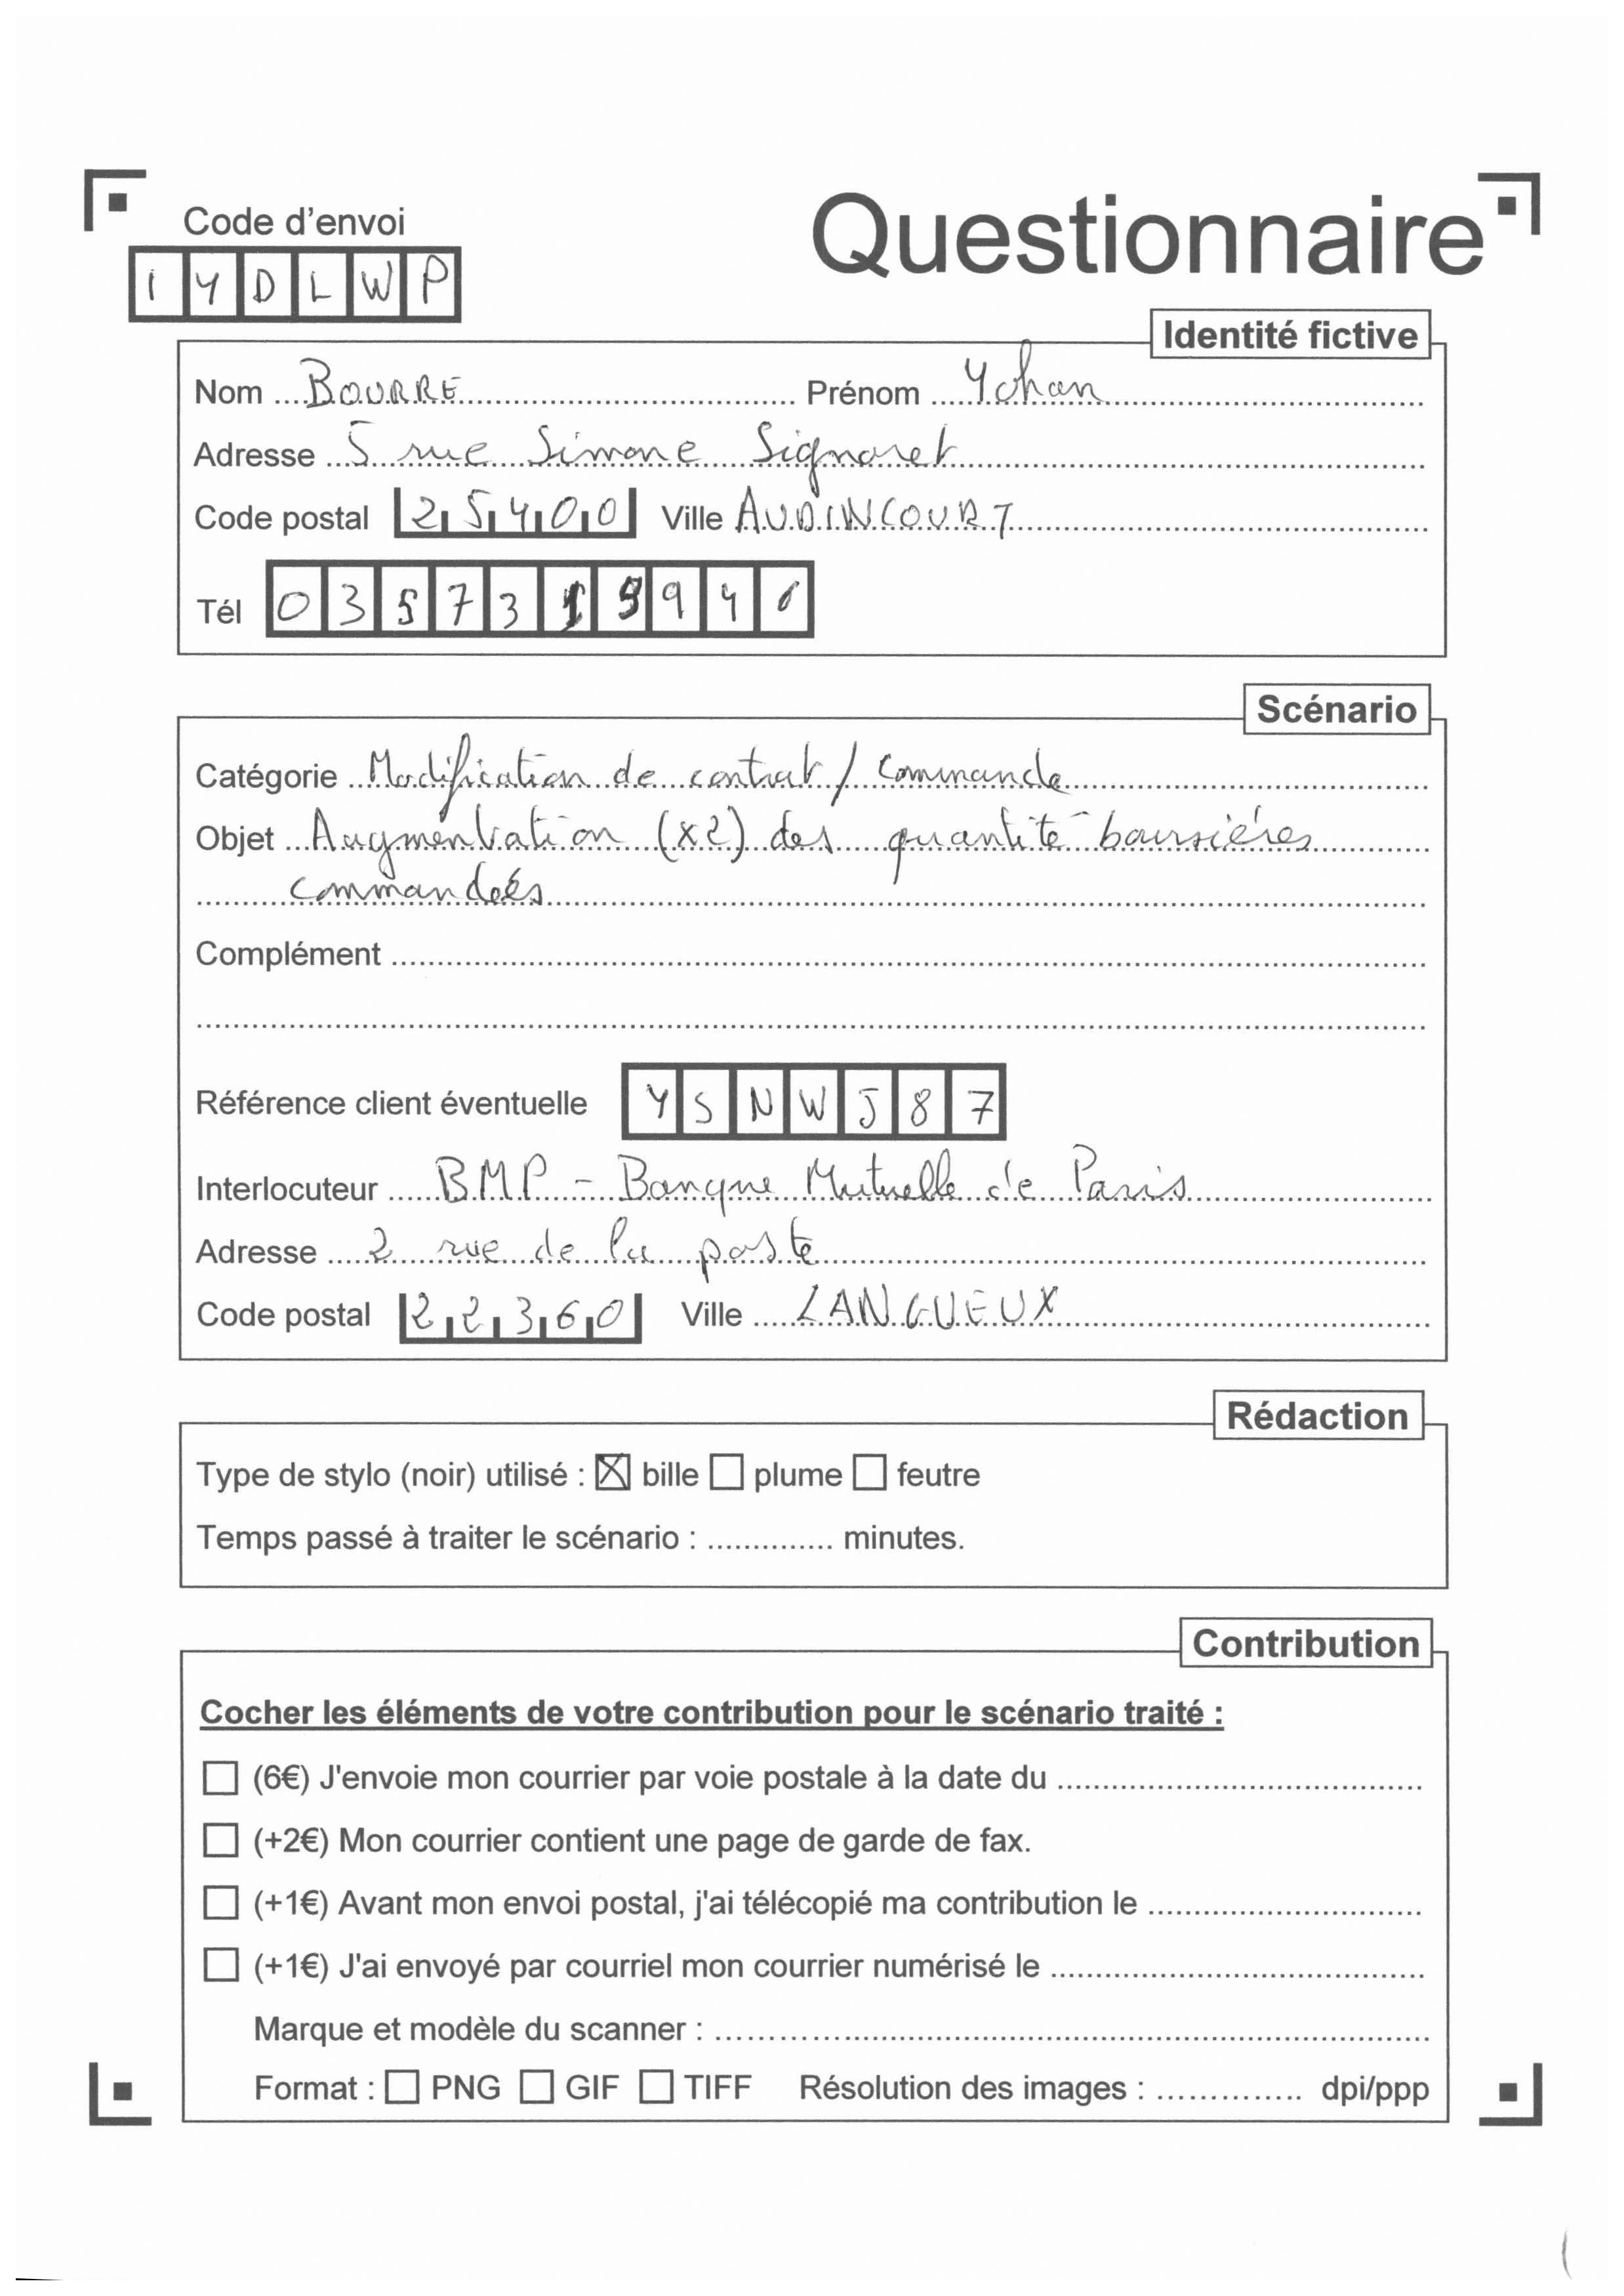 Code d'envoi
Questionnaire
I Y D L W P
Identité fictive
Nom BOURRE Prénom Yohan
Adresse 5 rue Simone Signoret
Code postal 25400 Ville AUDINCOURT
Tél 0 3 5 7 3 1 9 9 4
Scénario
Catégorie Modification de contrat / commande
Objet Augmentation (x2) des quantité boursières
commandées
Complément
Référence client éventuelle Y S N W J 8 7
Interlocuteur BMP - Banque Mutuelle de Paris
Adresse 2 rue de la poste
Code postal 22360 Ville LANGUEUX
Rédaction
Type de stylo (noir) utilisé : bille plume feutre
Temps passé à traiter le scénario : .............. minutes.
Contribution
Cocher les éléments de votre contribution pour le scénario traité :
(6€) J'envoie mon courrier par voie postale à la date du
(+2€) Mon courrier contient une page de garde de fax.
(+1€) Avant mon envoi postal, j'ai télécopié ma contribution le
(+1€) J'ai envoyé par courriel mon courrier numérisé le
Marque et modèle du scanner :
Format : PNG GIF TIFF Résolution des images : .............. dpi/ppp